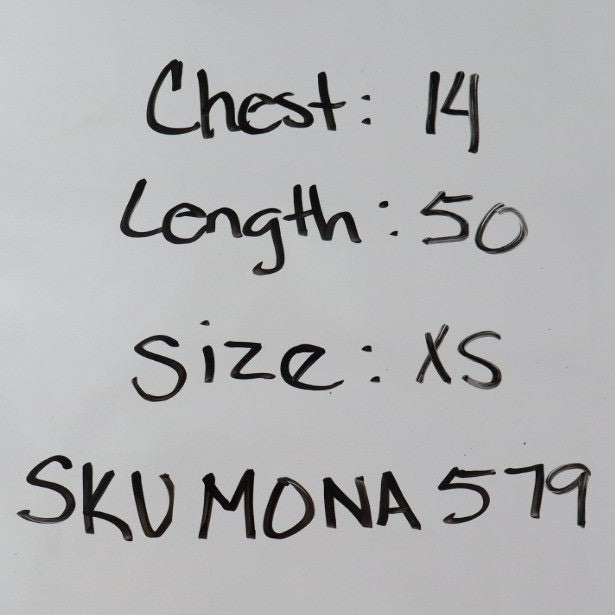 Chest: 14
Length: 50
Size: XS
SKU MONA 579